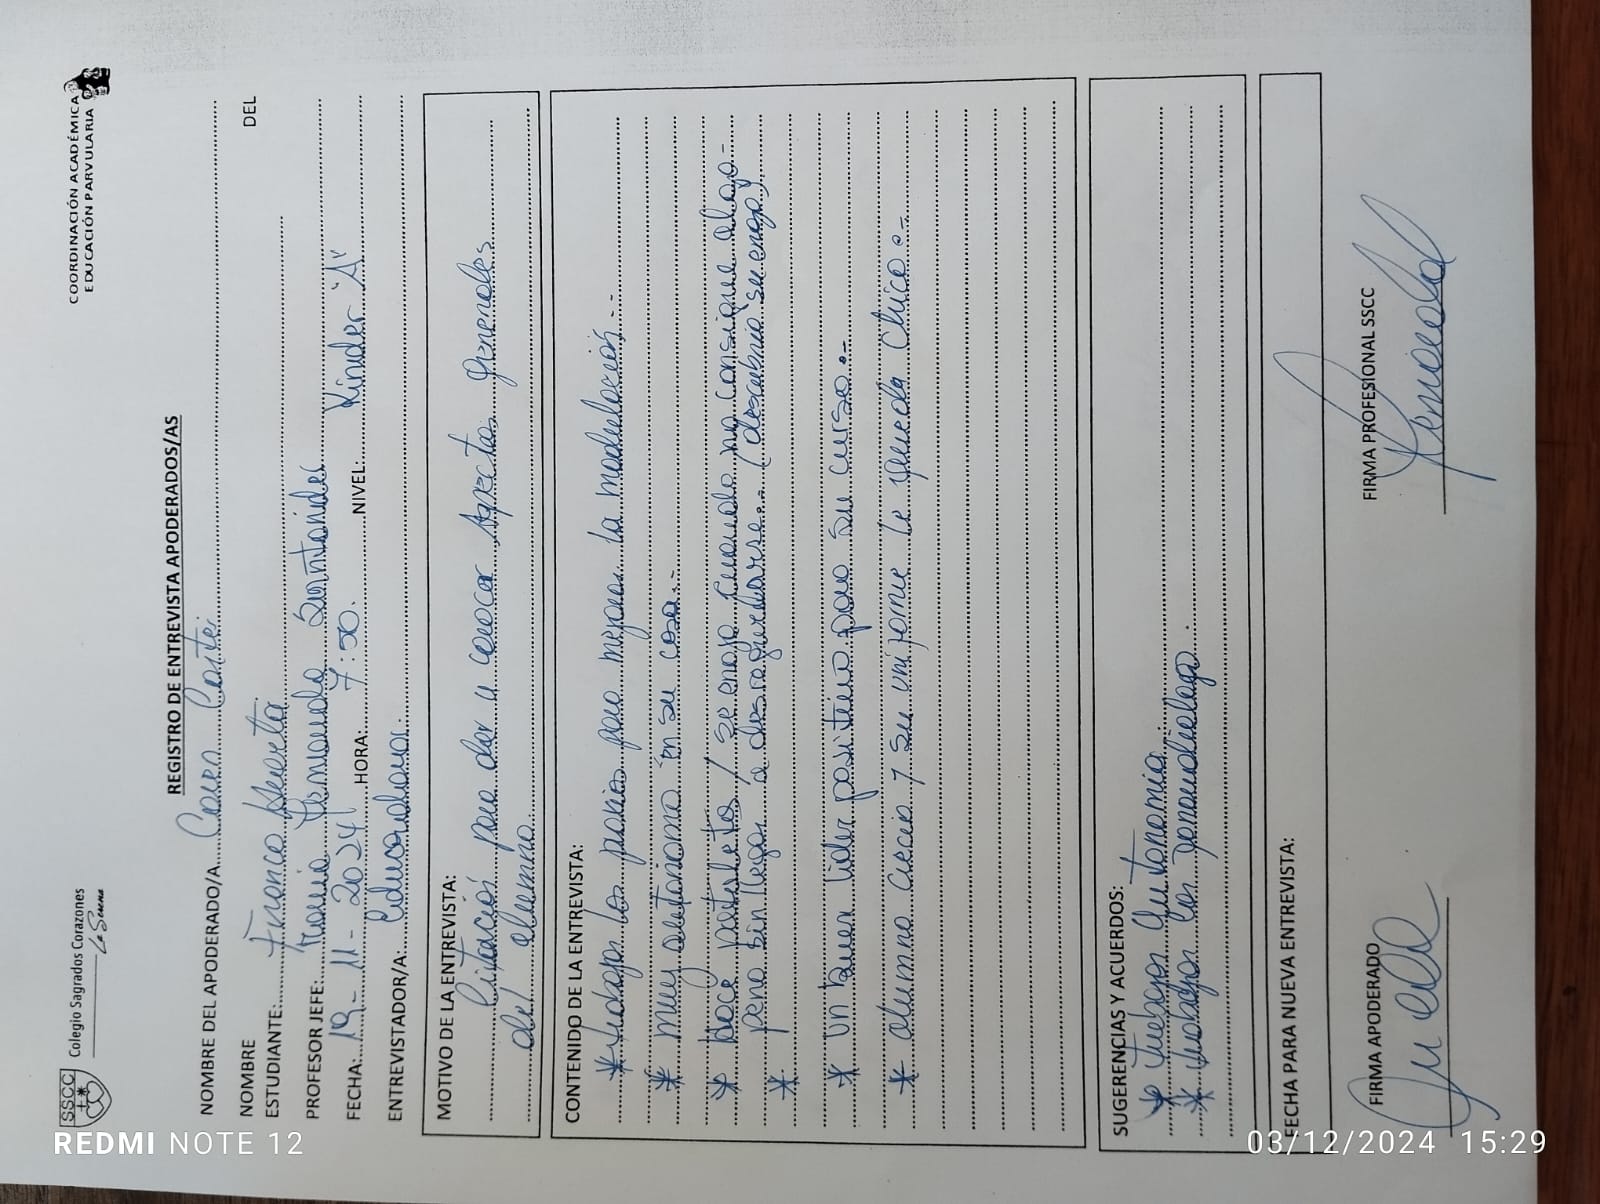 SSCC
Colegio Sagrados Corazones
La Serena
COORDINACIÓN ACADÉMICA
EDUCACIÓN PARVULARIA
REGISTRO DE ENTREVISTA APODERADOS/AS
NOMBRE DEL APODERADO/A Caren Cortei
NOMBRE DEL
ESTUDIANTE: Franco Huerta
PROFESOR JEFE: María Fernanda Santander
FECHA: 19-11-2024 HORA: 7:50. NIVEL: Kinder "A"
ENTREVISTADOR/A: Educadora.
MOTIVO DE LA ENTREVISTA:
Citación para dar a conocer Aspectos Generales
del alumno.
CONTENIDO DE LA ENTREVISTA:
* trabajar las para mejorar la modulación.-
* muy autónomo en su casa.-
* hace pataletas / se enoja cuando no consigue algo-
pero sin llegar a desregularse.. (descubrió su enojo)
*
* un buen lider positivo para su curso..-
* alumno creció y su uniforme le queda chico.-
SUGERENCIAS Y ACUERDOS:
* trabajar Autonomía
* trabajar con fonoaudiólogo.
FECHA PARA NUEVA ENTREVISTA:
FIRMA APODERADO
FIRMA PROFESIONAL SSCC
REDMI NOTE 12
03/12/2024 15:29